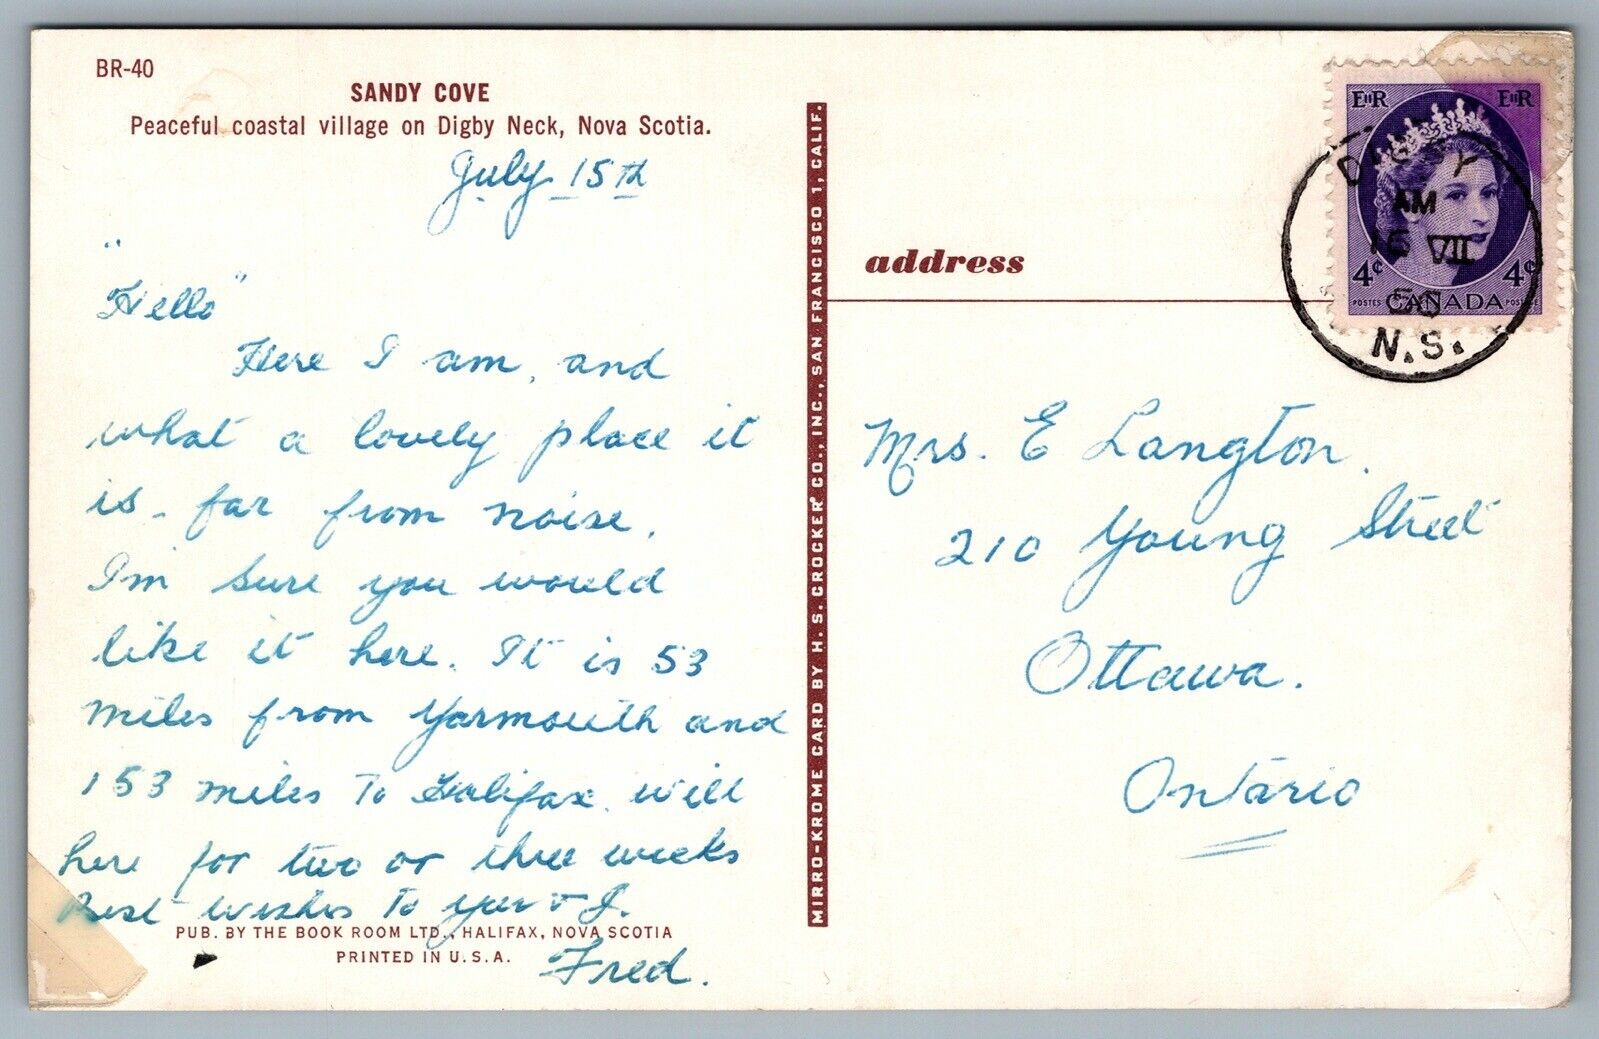 BR-40
SANDY COVE
Peaceful coastal village on Digby Neck, Nova Scotia.
July 15th
"Hello"
Here I am, and
what a lovely place it
is - far from noise.
I'm sure you would
like it here. It is 53
miles from Yarmouth and
153 miles to Halifax. will
here for two or three weeks
Best wishes to you + J.
Fred.
PUB. BY THE BOOK ROOM LTD., HALIFAX, NOVA SCOTIA
PRINTED IN U.S.A.
MIRRO-KROME CARD BY H. S. CROCKER CO., INC., SAN FRANCISCO 1, CALIF.
address
EIIR EIIR
4c 4c
POSTES CANADA POSTAGE
DIGBY
AM
15 VII
N.S.
Mrs. E Langton.
210 Young Street
Ottawa.
Ontario